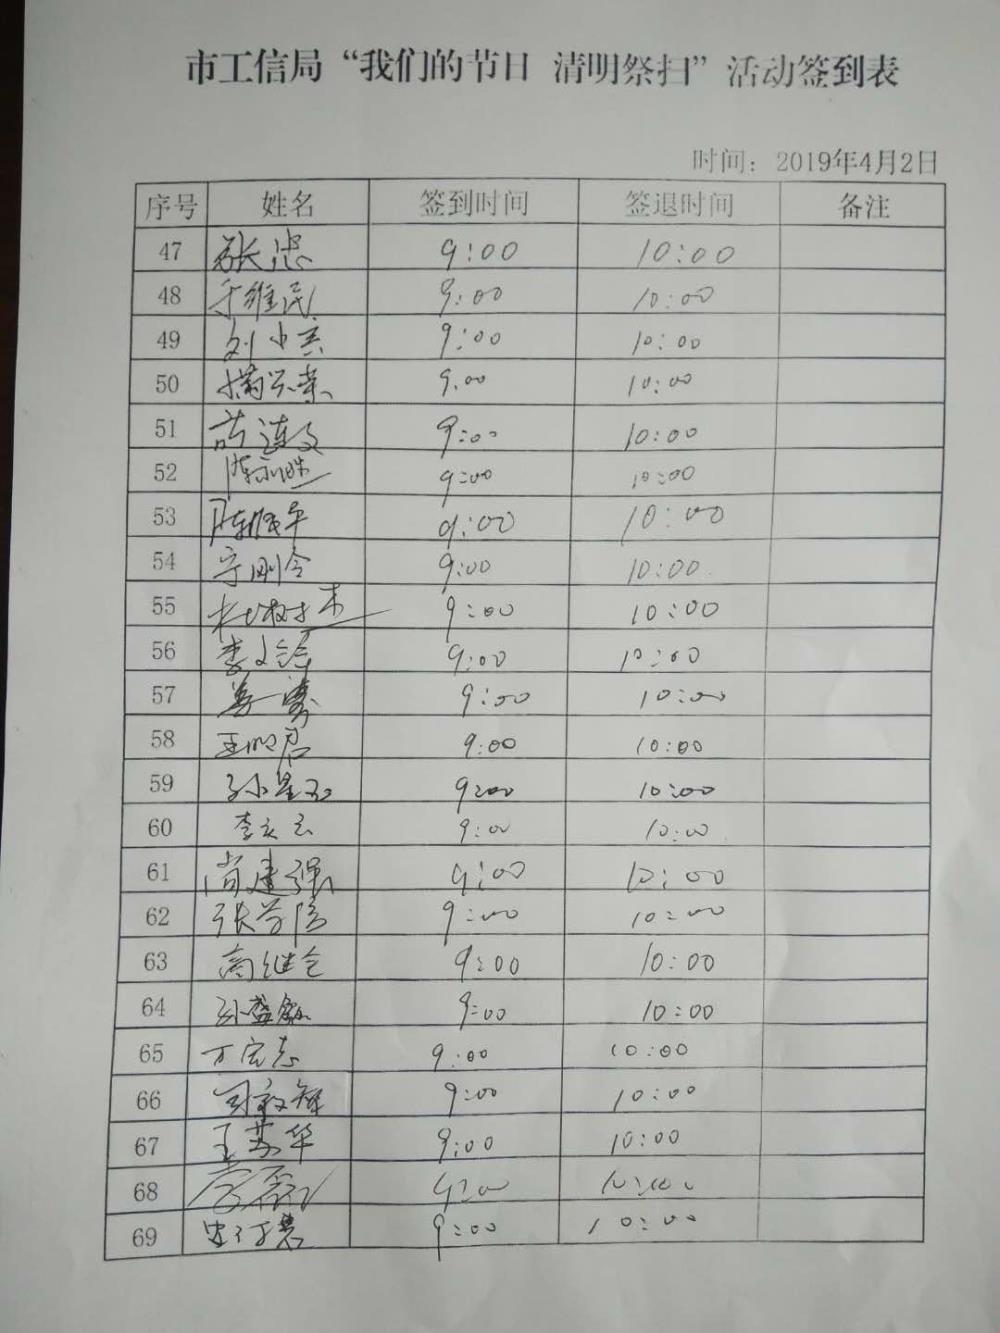 市工信局“我们的节日 清明祭扫”活动签到表
时间：2019年4月2日
序号 姓名 签到时间 签退时间 备注
47 张忠 9:00 10:00
48 于维民 9:00 10:00
49 刘中 9:00 10:00
50 9:00 10:00
51 连 9:00 10:00
52 陈 9:00 10:00
53 陈 9:00 10:00
54 宁刚令 9:00 10:00
55 杜树杰 9:00 10:00
56 李文 9:00 10:00
57 9:00 10:00
58 王明君 9:00 10:00
59 孙星 9:00 10:00
60 李 9:00 10:00
61 尚建强 9:00 10:00
62 张 9:00 10:00
63 高继 9:00 10:00
64 孙 9:00 10:00
65 万宏志 9:00 10:00
66 9:00 10:00
67 王苏华 9:00 10:00
68 9:00 10:00
69 9:00 10:00